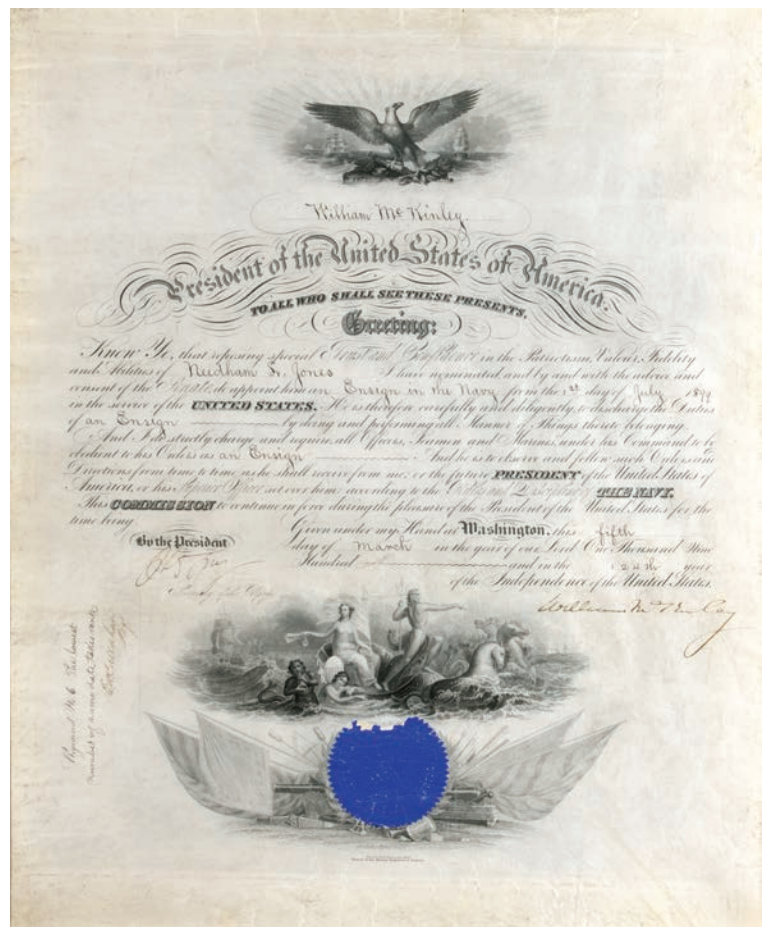 William McKinley.
President of the United States of America.
TO ALL WHO SHALL SEE THESE PRESENTS,
Greeting:
Know Ye, that reposing special Trust and Confidence in the Patriotism, Valour, Fidelity
and Abilities of Needham L. Jones I have nominated and by and with the advice and
consent of the Senate do appoint him an Ensign in the Navy from the 1st day of July 1899
in the service of the UNITED STATES. He is therefore carefully and diligently to discharge the Duties
of an Ensign by doing and performing all Manner of Things thereto belonging.
And I do strictly charge and require all Officers, Seamen and Marines under his Command to be
obedient to his Orders as an Ensign And he is to observe and follow such Orders and
Directions from time to time as he shall receive from me, or the future PRESIDENT of the United States of
America, or his Superior Officer set over him according to the Rules and Discipline of THE NAVY.
This COMMISSION to continue in force during the pleasure of the President of the United States for the
time being
Given under my Hand at Washington, this fifth
By the President
day of March in the year of our Lord One Thousand Nine
Hundred and in the 124th year
of the Independence of the United States.
Secretary of the Navy
William McKinley
number of same date, takes rank